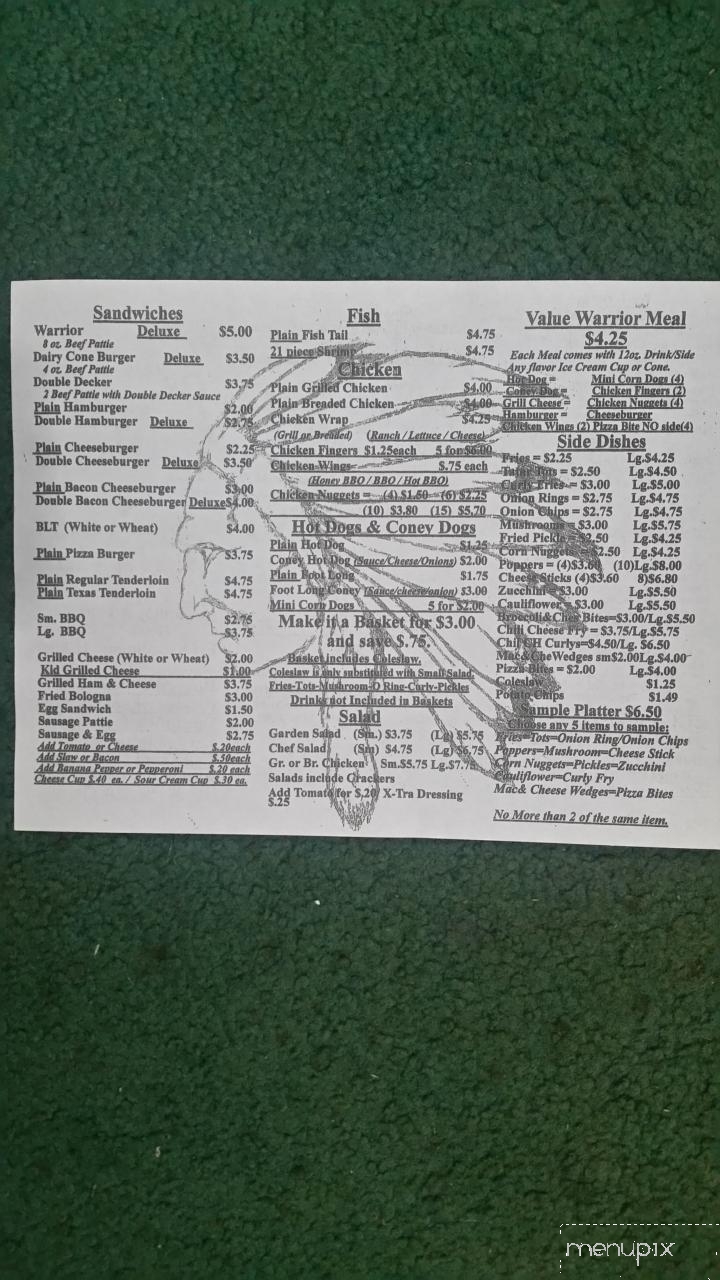 Sandwiches
Warrior Deluxe $5.00
8 oz. Beef Pattie
Dairy Cone Burger Deluxe $3.50
4 oz. Beef Pattie
Double Decker $3.75
2 Beef Pattie with Double Decker Sauce
Plain Hamburger $2.00
Double Hamburger Deluxe $2.75
Plain Cheeseburger $2.25
Double Cheeseburger Deluxe $3.50
Plain Bacon Cheeseburger $3.00
Double Bacon Cheeseburger Deluxe $4.00
BLT (White or Wheat) $4.00
Plain Pizza Burger $3.75
Plain Regular Tenderloin $4.75
Plain Texas Tenderloin $4.75
Sm. BBQ $2.75
Lg. BBQ $3.75
Grilled Cheese (White or Wheat) $2.00
Kid Grilled Cheese $1.00
Grilled Ham & Cheese $3.75
Fried Bologna $3.00
Egg Sandwich $1.50
Sausage Pattie $2.00
Sausage & Egg $2.75
Add Tomato or Cheese $.20each
Add Slaw or Bacon $.50each
Add Banana Pepper or Pepperoni $.20 each
Cheese Cup $.40 ea. / Sour Cream Cup $.30 ea.
Fish
Plain Fish Tail $4.75
21 piece Shrimp $4.75
Chicken
Plain Grilled Chicken $4.00
Plain Breaded Chicken $4.00
Chicken Wrap $4.25
(Grill or Breaded) (Ranch / Lettuce / Cheese)
Chicken Fingers $1.25each 5 for $6.00
Chicken Wings $.75 each
(Honey BBQ / BBQ / Hot BBQ)
Chicken Nuggets = (4) $1.50 (6) $2.25
(10) $3.80 (15) $5.70
Hot Dogs & Coney Dogs
Plain Hot Dog $1.25
Coney Hot Dog (Sauce/Cheese/Onions) $2.00
Plain Foot Long $1.75
Foot Long Coney (Sauce/cheese/onion) $3.00
Mini Corn Dogs 5 for $2.00
Make it a Basket for $3.00
and save $.75.
Basket includes Coleslaw.
Coleslaw is only substituted with Small Salad.
Fries-Tots-Mushroom-O Ring-Curly-Pickles
Drinks not Included in Baskets
Salad
Garden Salad (Sm.) $3.75 (Lg) $5.75
Chef Salad (Sm) $4.75 (Lg) $6.75
Gr. or Br. Chicken Sm.$5.75 Lg.$7.75
Salads include Crackers
Add Tomato for $.20 X-Tra Dressing
$.25
Value Warrior Meal
$4.25
Each Meal comes with 12oz. Drink/Side
Any flavor Ice Cream Cup or Cone.
Hot Dog = Mini Corn Dogs (4)
Coney Dog = Chicken Fingers (2)
Grill Cheese = Chicken Nuggets (4)
Hamburger = Cheeseburger
Chicken Wings (2) Pizza Bite NO side(4)
Side Dishes
Fries = $2.25 Lg.$4.25
Tatar Tots = $2.50 Lg.$4.50
Curly Fries = $3.00 Lg.$5.00
Onion Rings = $2.75 Lg.$4.75
Onion Chips = $2.75 Lg.$4.75
Mushrooms = $3.00 Lg.$5.75
Fried Pickle = $2.50 Lg.$4.25
Corn Nuggets = $2.50 Lg.$4.25
Poppers = (4)$3.60 (10)Lg.$8.00
Cheese Sticks (4)$3.60 8)$6.80
Zucchini = $3.00 Lg.$5.50
Cauliflower = $3.00 Lg.$5.50
Broccoli&Chez Bites=$3.00/Lg.$5.50
Chili Cheese Fry = $3.75/Lg.$5.75
Chil CH Curlys=$4.50/Lg. $6.50
Mac&CheWedges sm$2.00Lg.$4.00
Pizza Bites = $2.00 Lg.$4.00
Coleslaw $1.25
Potato Chips $1.49
Sample Platter $6.50
Choose any 5 items to sample:
Fries=Tots=Onion Ring/Onion Chips
Poppers=Mushroom=Cheese Stick
Corn Nuggets=Pickles=Zucchini
Cauliflower=Curly Fry
Mac& Cheese Wedges=Pizza Bites
No More than 2 of the same item.
menupix